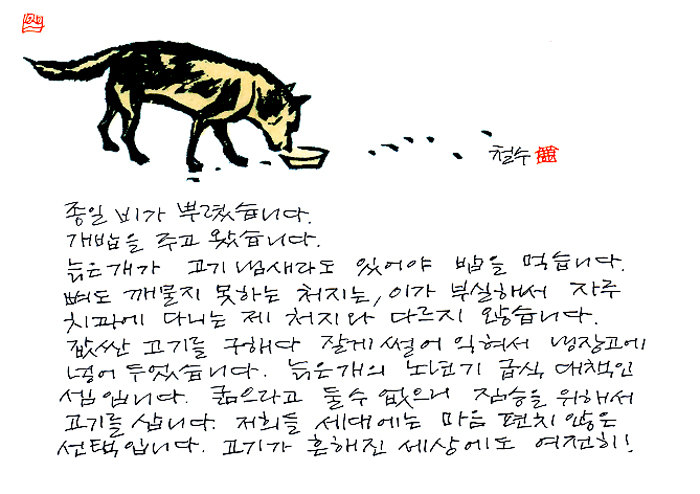 철수
종일 비가 뿌렸습니다.
개밥을 주고 왔습니다.
늙은개가 고기 냄새라도 있어야 밥을 먹습니다.
뼈도 깨물지 못하는 처지는, 이가 부실해서 자주
치과에 다니는 제 처지와 다르지 않습니다.
값싼 고기를 구해다 잘게 썰어 익혀서 냉장고에
넣어 두었습니다. 늙은개의 노년기 급식 대책인
셈입니다. 굶으라고 둘수 없으니 짐승을 위해서
고기를 삽니다. 저희들 세대에는 마음 편치 않은
선택입니다. 고기가 흔해진 세상에도 여전히!